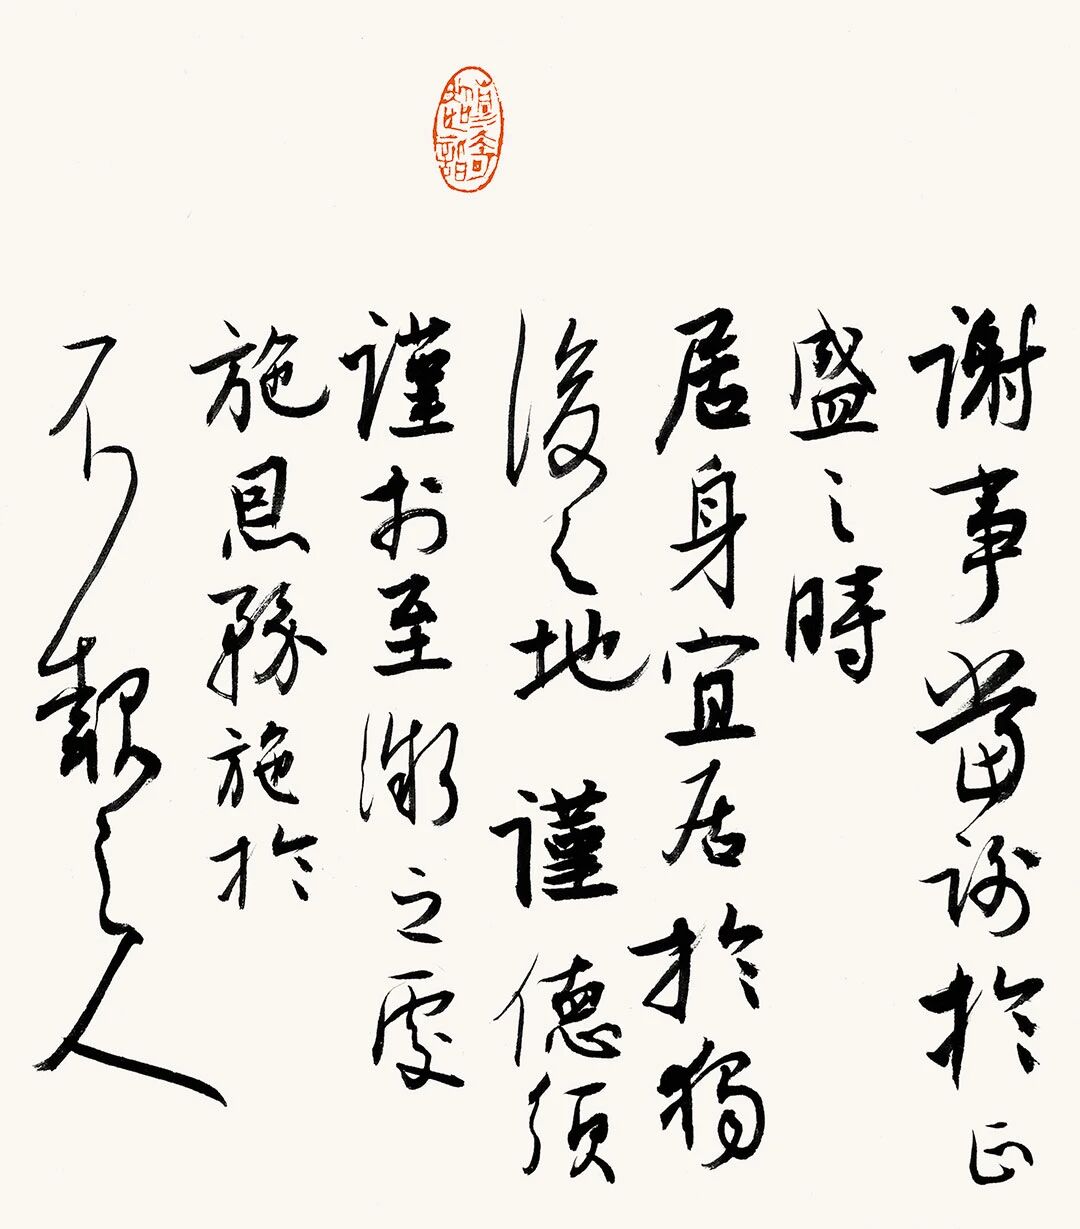 謝事當謝於正
盛之時
居身宜居於獨
後之地 謹德須
謹於至微之處
施恩務施於
不報之人